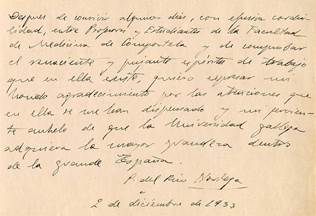 Despues de convivir algunos dias, con efusiva cordia-
lidad, entre Profesores y Estudiantes de la Facultad
de Medicina de Compostela y de comprobar
el renaciente y pujante espiritu de trabajo
que en ella existe, quiero expresar un
hondo agradecimiento por las atenciones que
en ella se me han dispensado y un fervien-
te anhelo de que la Universidad gallega
adquiera la mayor grandeza dentro
de la grande España.
P. del Rio Hortega
2 de diciembre de 1933